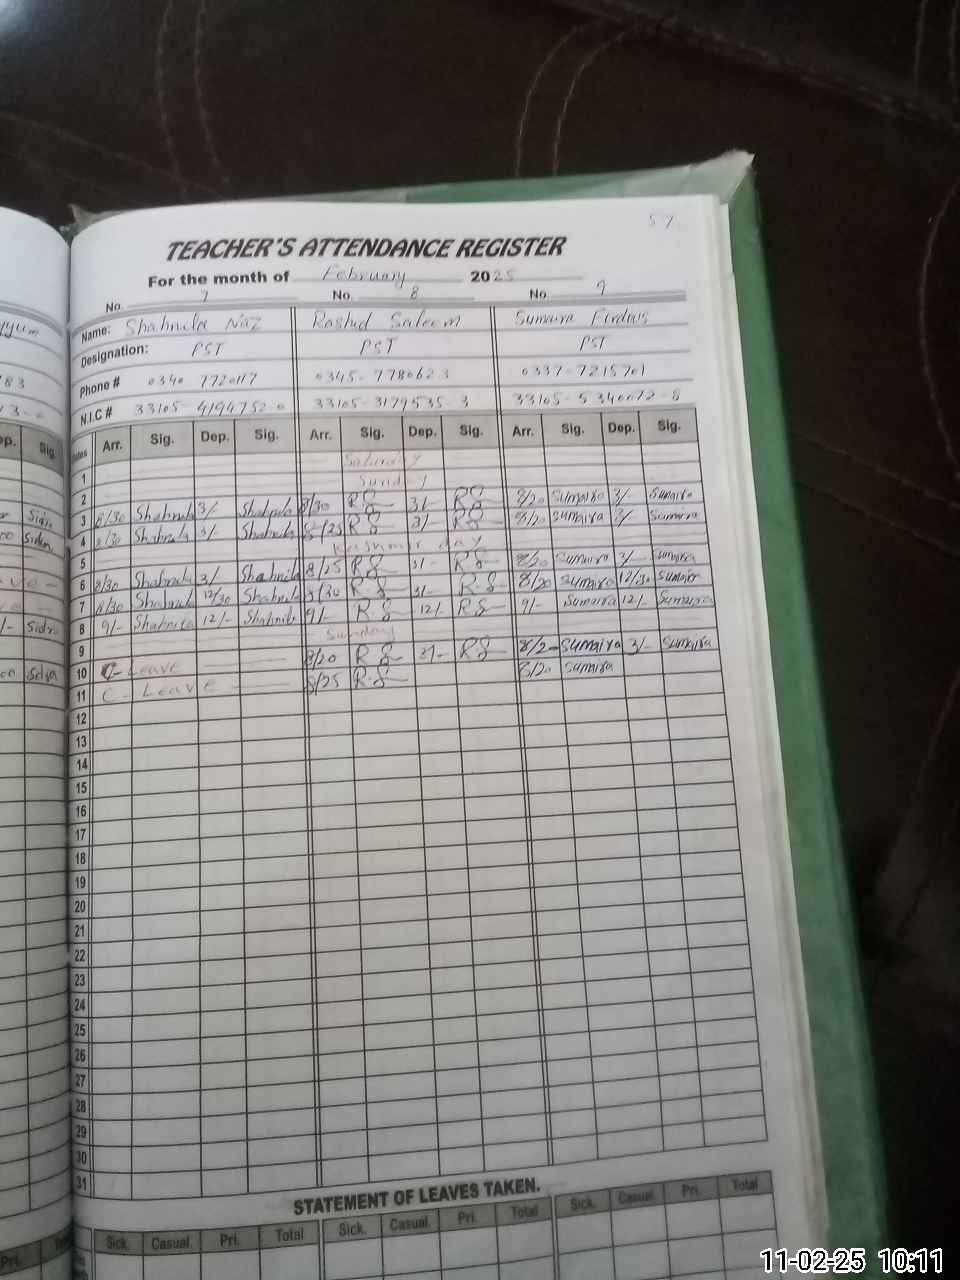 57
TEACHER'S ATTENDANCE REGISTER
For the month of February 2025
No. 7 No. 8 No. 9
Name: Shahnila Naz Rashid Saleem Sumaira Firdous
Designation: PST PST PST
Phone # 0340 7720117 0345-7780623 0337-7215701
N.I.C # 33105-4194752-0 33105-3179535-3 33105-5340072-8
Dates Arr. Sig. Dep. Sig. Arr. Sig. Dep. Sig. Arr. Sig. Dep. Sig.
1 Saturday
2 Sunday
3 8/30 Shahnila 3/- Shahnila 8/30 R.S 3/- R.S 8/20 Sumaira 3/- Sumaira
4 8/30 Shahnila 3/- Shahnila 8/25 R.S 3/- R.S 8/20 Sumaira 3/- Sumaira
5 Kashmir day
6 8/30 Shahnila 3/- Shahnila 8/25 R.S 3/- R.S 8/20 Sumaira 3/- Sumaira
7 8/30 Shahnila 12/30 Shahnila 8/30 R.S 3/- R.S 8/20 Sumaira 12/30 Sumaira
8 9/- Shahnila 12/- Shahnila 9/- R.S 12/- R.S 9/- Sumaira 12/- Sumaira
9 Sunday
10 C-Leave 8/20 R.S 3/- R.S 8/20 Sumaira 3/- Sumaira
11 C-Leave 8/25 R.S 8/20 Sumaira
12
13
14
15
16
17
18
19
20
21
22
23
24
25
26
27
28
29
30
31
STATEMENT OF LEAVES TAKEN.
Sick. Casual. Pri. Total Sick. Casual. Pri. Total Sick. Casual. Pri. Total
11-02-25 10:11